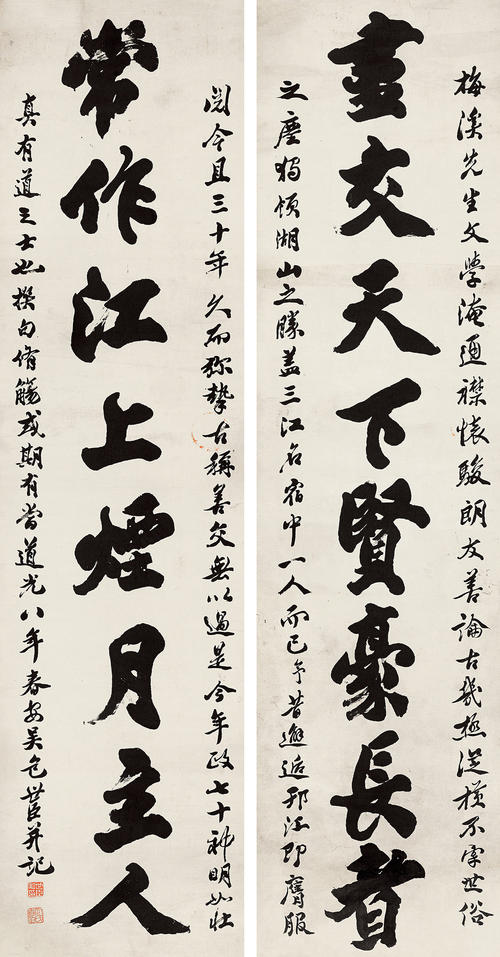 梅溪先生文學淹通襟懷駿朗友善論古幾極從橫不世俗
盡交天下賢豪長者
之塵獨領湖山之勝蓋三江名宿中一人而已予昔邂逅邗江即膺服
閱今且三十年久而弥摯古稱善交無以過是今年政七十神明如壯
常作江上煙月主人
真有道之士也撰句侑觴或期有當道光八年春安吳包世臣并記